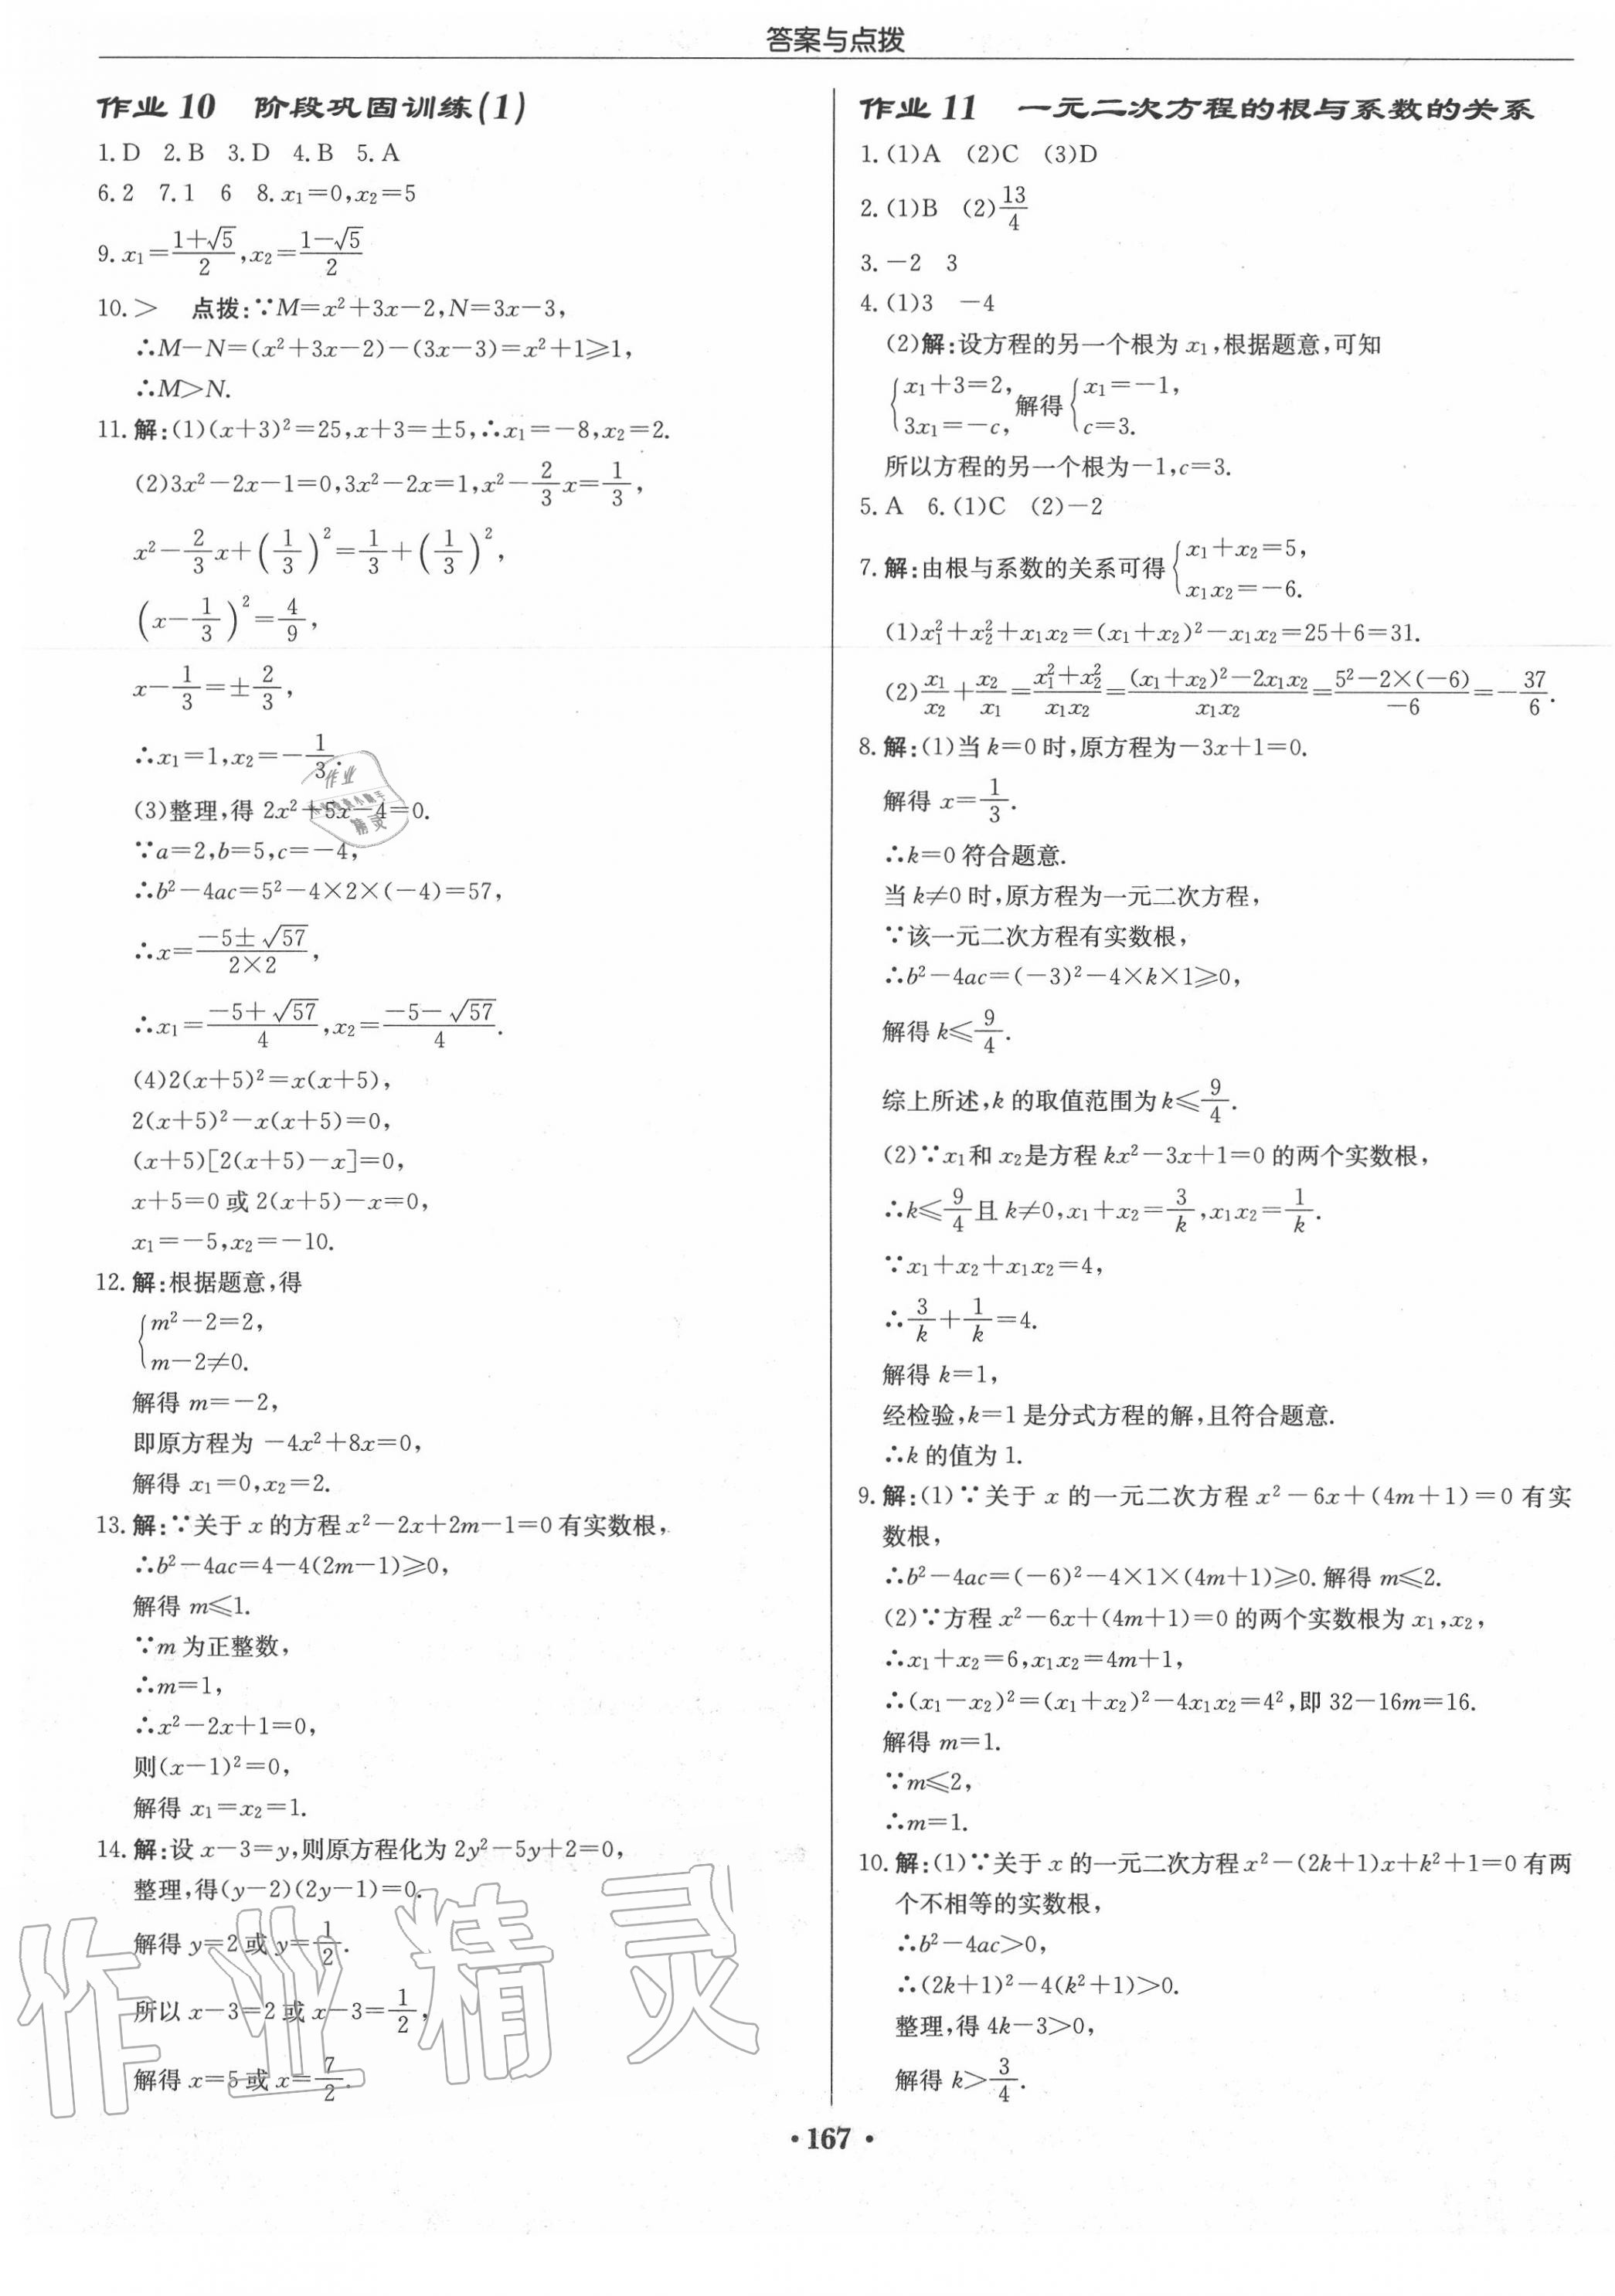 答案与点拨
作业 10 阶段巩固训练(1)
1.D 2.B 3.D 4.B 5.A
6.2 7.1 6 8.x₁=0,x₂=5
9.x₁=(1+√5)/2,x₂=(1-√5)/2
10.> 点拨:∵M=x²+3x-2,N=3x-3,
∴M-N=(x²+3x-2)-(3x-3)=x²+1≥1,
∴M>N.
11.解:(1)(x+3)²=25,x+3=±5,∴x₁=-8,x₂=2.
(2)3x²-2x-1=0,3x²-2x=1,x²-2/3x=1/3,
x²-2/3x+(1/3)²=1/3+(1/3)²,
(x-1/3)²=4/9,
x-1/3=±2/3,
∴x₁=1,x₂=-1/3.
(3)整理,得 2x²+5x-4=0.
∵a=2,b=5,c=-4,
∴b²-4ac=5²-4×2×(-4)=57,
∴x=(-5±√57)/(2×2),
∴x₁=(-5+√57)/4,x₂=(-5-√57)/4.
(4)2(x+5)²=x(x+5),
2(x+5)²-x(x+5)=0,
(x+5)[2(x+5)-x]=0,
x+5=0 或 2(x+5)-x=0,
x₁=-5,x₂=-10.
12.解:根据题意,得
{m²-2=2,
m-2≠0.
解得 m=-2,
即原方程为 -4x²+8x=0,
解得 x₁=0,x₂=2.
13.解:∵关于 x 的方程 x²-2x+2m-1=0 有实数根,
∴b²-4ac=4-4(2m-1)≥0,
解得 m≤1.
∵m 为正整数,
∴m=1,
∴x²-2x+1=0,
则(x-1)²=0,
解得 x₁=x₂=1.
14.解:设 x-3=y,则原方程化为 2y²-5y+2=0,
整理,得(y-2)(2y-1)=0.
解得 y=2 或 y=1/2.
所以 x-3=2 或 x-3=1/2,
解得 x=5 或 x=7/2.
作业 11 一元二次方程的根与系数的关系
1.(1)A (2)C (3)D
2.(1)B (2)13/4
3.-2 3
4.(1)3 -4
(2)解:设方程的另一个根为 x₁,根据题意,可知
{x₁+3=2, 3x₁=-c, 解得{x₁=-1, c=3.
所以方程的另一个根为-1,c=3.
5.A 6.(1)C (2)-2
7.解:由根与系数的关系可得{x₁+x₂=5, x₁x₂=-6.
(1)x₁²+x₂²+x₁x₂=(x₁+x₂)²-x₁x₂=25+6=31.
(2)x₁/x₂+x₂/x₁=(x₁²+x₂²)/(x₁x₂)=((x₁+x₂)²-2x₁x₂)/(x₁x₂)=(5²-2×(-6))/(-6)=-37/6.
8.解:(1)当 k=0 时,原方程为-3x+1=0.
解得 x=1/3.
∴k=0 符合题意.
当 k≠0 时,原方程为一元二次方程,
∵该一元二次方程有实数根,
∴b²-4ac=(-3)²-4×k×1≥0,
解得 k≤9/4.
综上所述,k 的取值范围为 k≤9/4.
(2)∵x₁和 x₂是方程 kx²-3x+1=0 的两个实数根,
∴k≤9/4且 k≠0,x₁+x₂=3/k,x₁x₂=1/k.
∵x₁+x₂+x₁x₂=4,
∴3/k+1/k=4.
解得 k=1,
经检验,k=1 是分式方程的解,且符合题意.
∴k 的值为 1.
9.解:(1)∵关于 x 的一元二次方程 x²-6x+(4m+1)=0 有实
数根,
∴b²-4ac=(-6)²-4×1×(4m+1)≥0.解得 m≤2.
(2)∵方程 x²-6x+(4m+1)=0 的两个实数根为 x₁,x₂,
∴x₁+x₂=6,x₁x₂=4m+1,
∴(x₁-x₂)²=(x₁+x₂)²-4x₁x₂=4²,即 32-16m=16.
解得 m=1.
∵m≤2,
∴m=1.
10.解:(1)∵关于 x 的一元二次方程 x²-(2k+1)x+k²+1=0 有两
个不相等的实数根,
∴b²-4ac>0,
∴(2k+1)²-4(k²+1)>0.
整理,得 4k-3>0,
解得 k>3/4.
作业
精灵
作业精灵
·167·